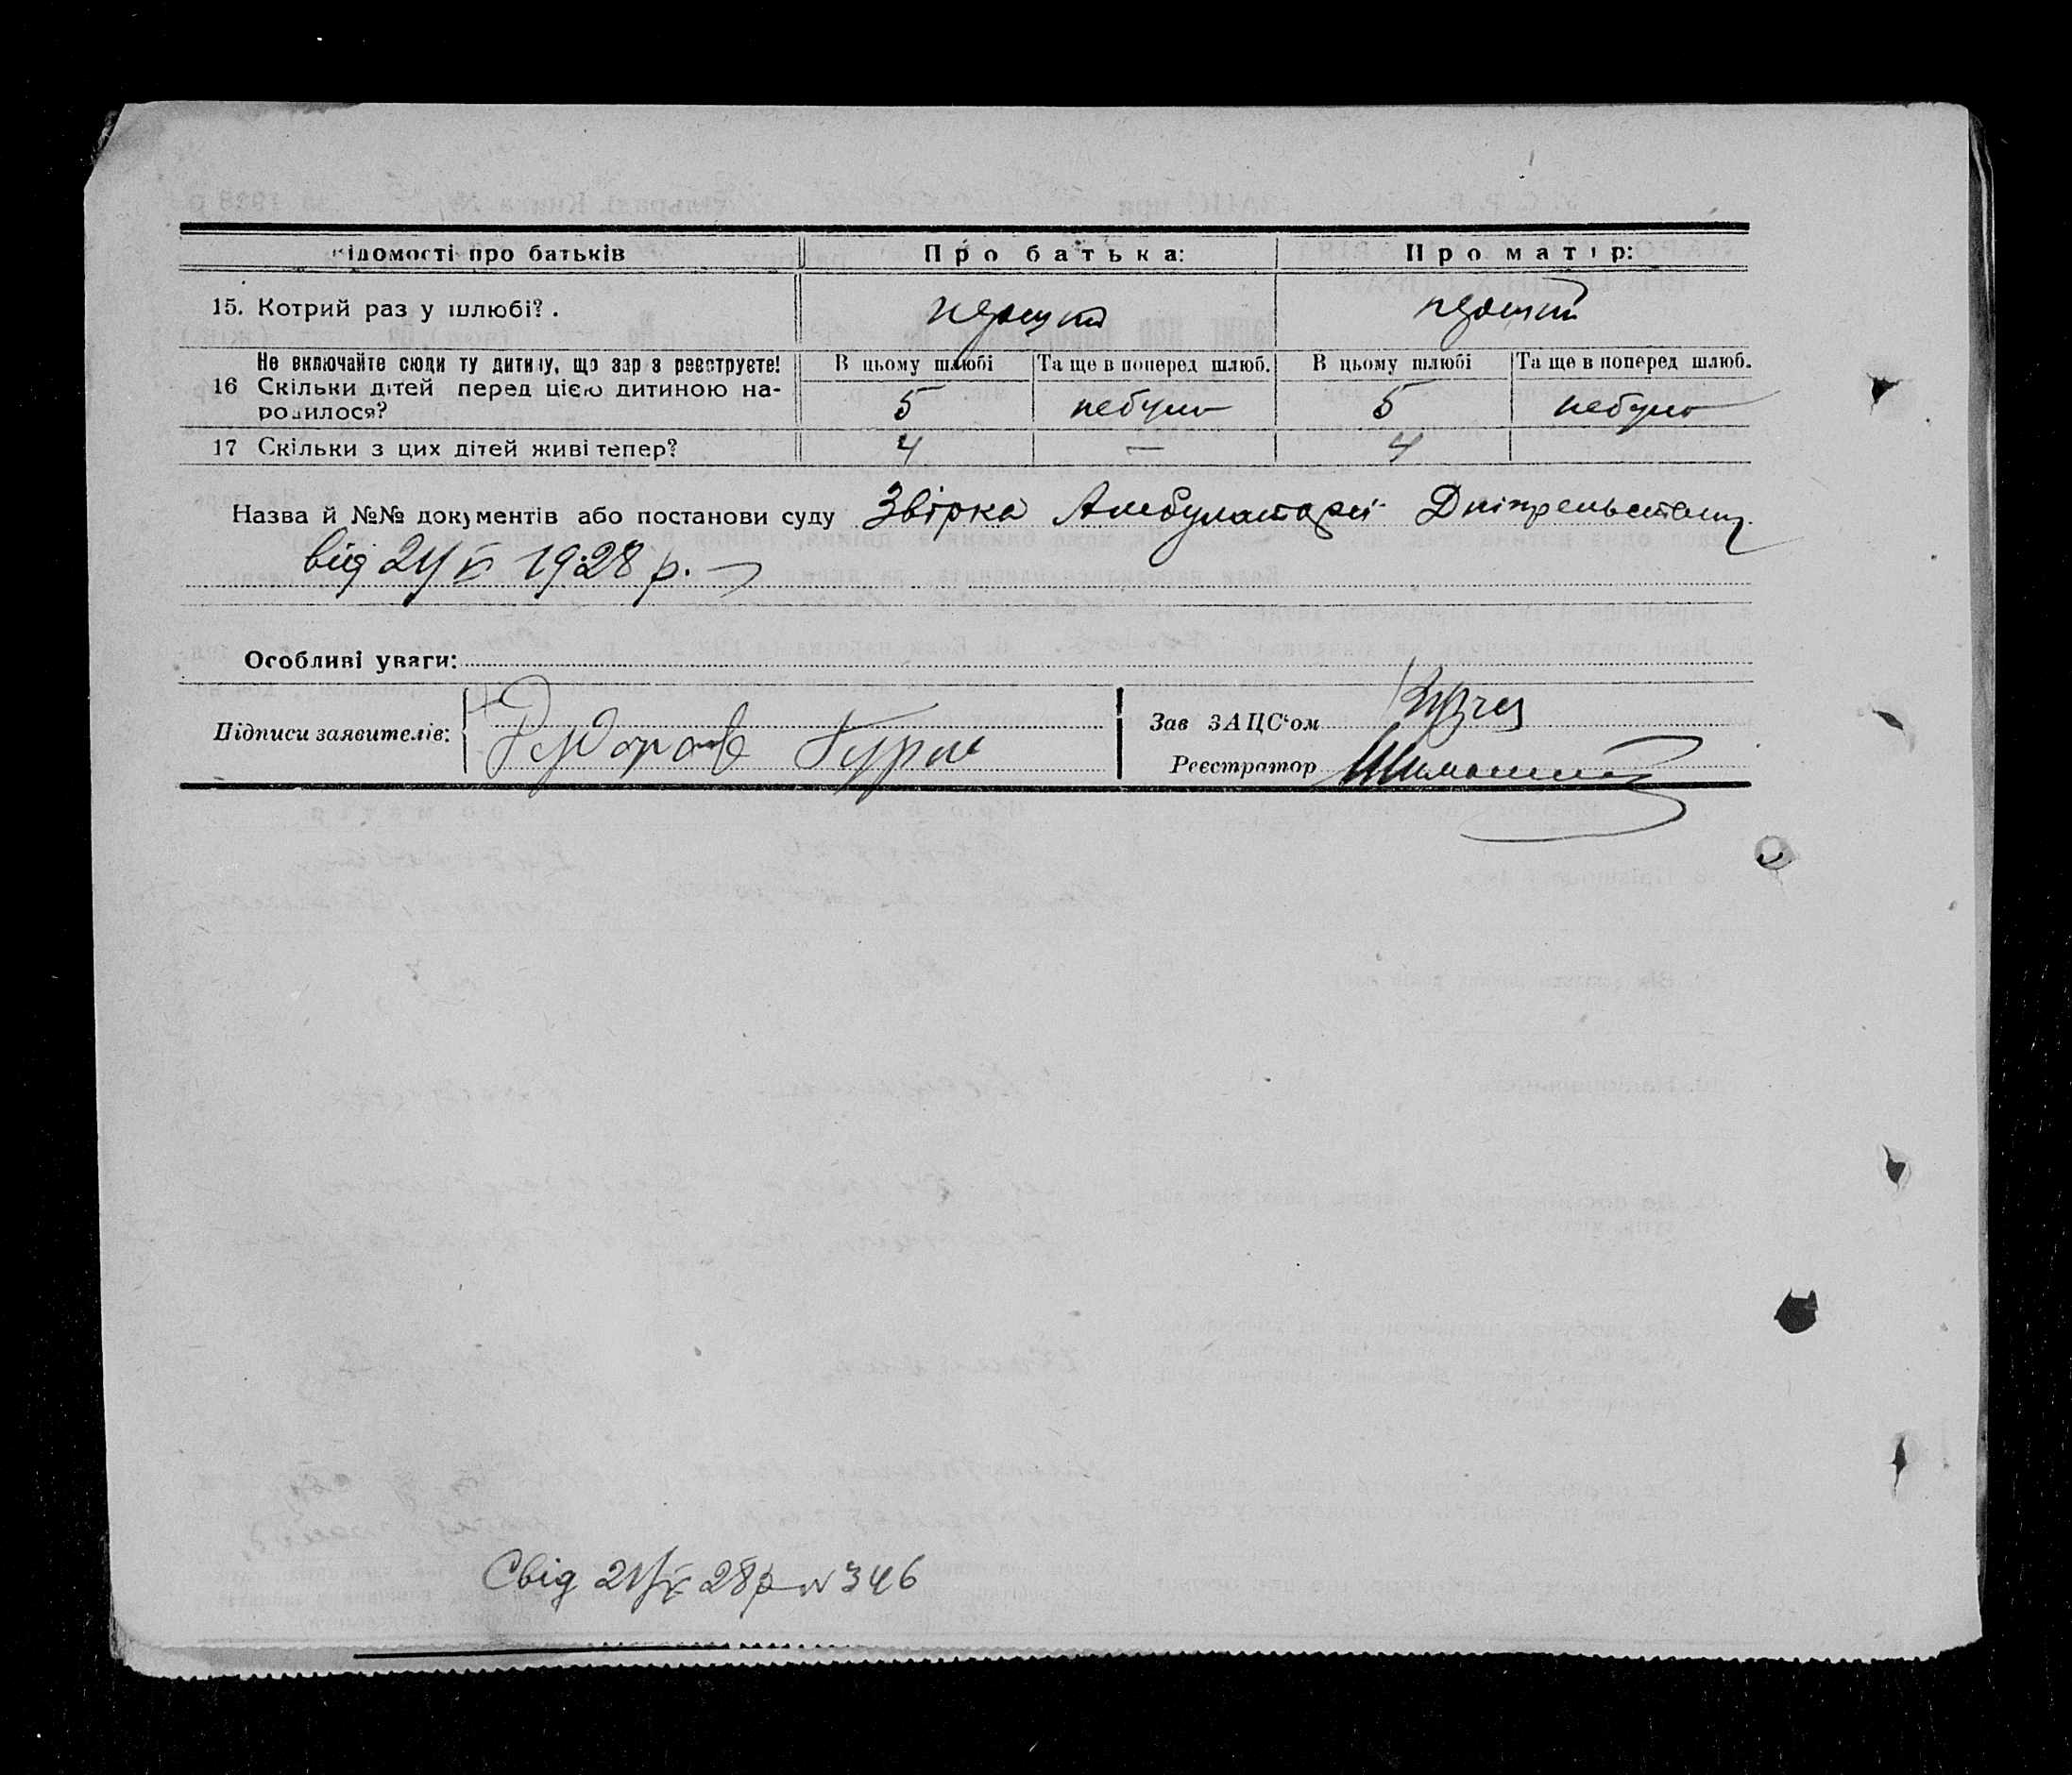 відомості про батьків
Про батька:
Про матір:
15. Котрий раз у шлюбі?.
перший
перший
Не включайте сюди ту дитину, що зараз реєструєте!
В цьому шлюбі
Та ще в поперед шлюб.
В цьому шлюбі
Та ще в поперед шлюб.
16 Скільки дітей перед цією дитиною на-
родилося?
5
небуло
5
небуло
17 Скільки з цих дітей живі тепер?
4
—
4
Назва й №№ документів або постанови суду Звірка Амбулаторії Дніпрельстану
від 21/ІХ 1928 р.
Особливі уваги:
Підписи заявителів:
Зав ЗАЦС‘ом
Реєстратор
Свід 21/ІХ 28р N 346